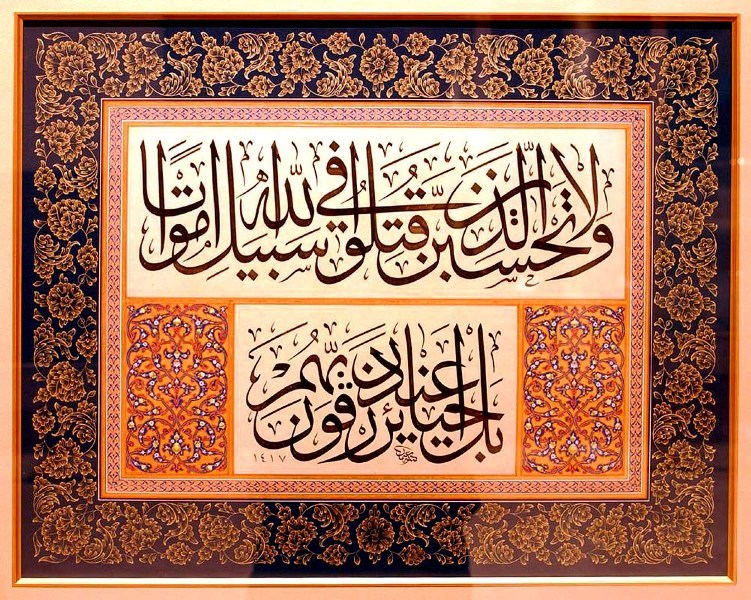 ولا تحسبن الذين قتلوا في سبيل الله امواتا
بل احياء عند ربهم يرزقون
١٤١٧